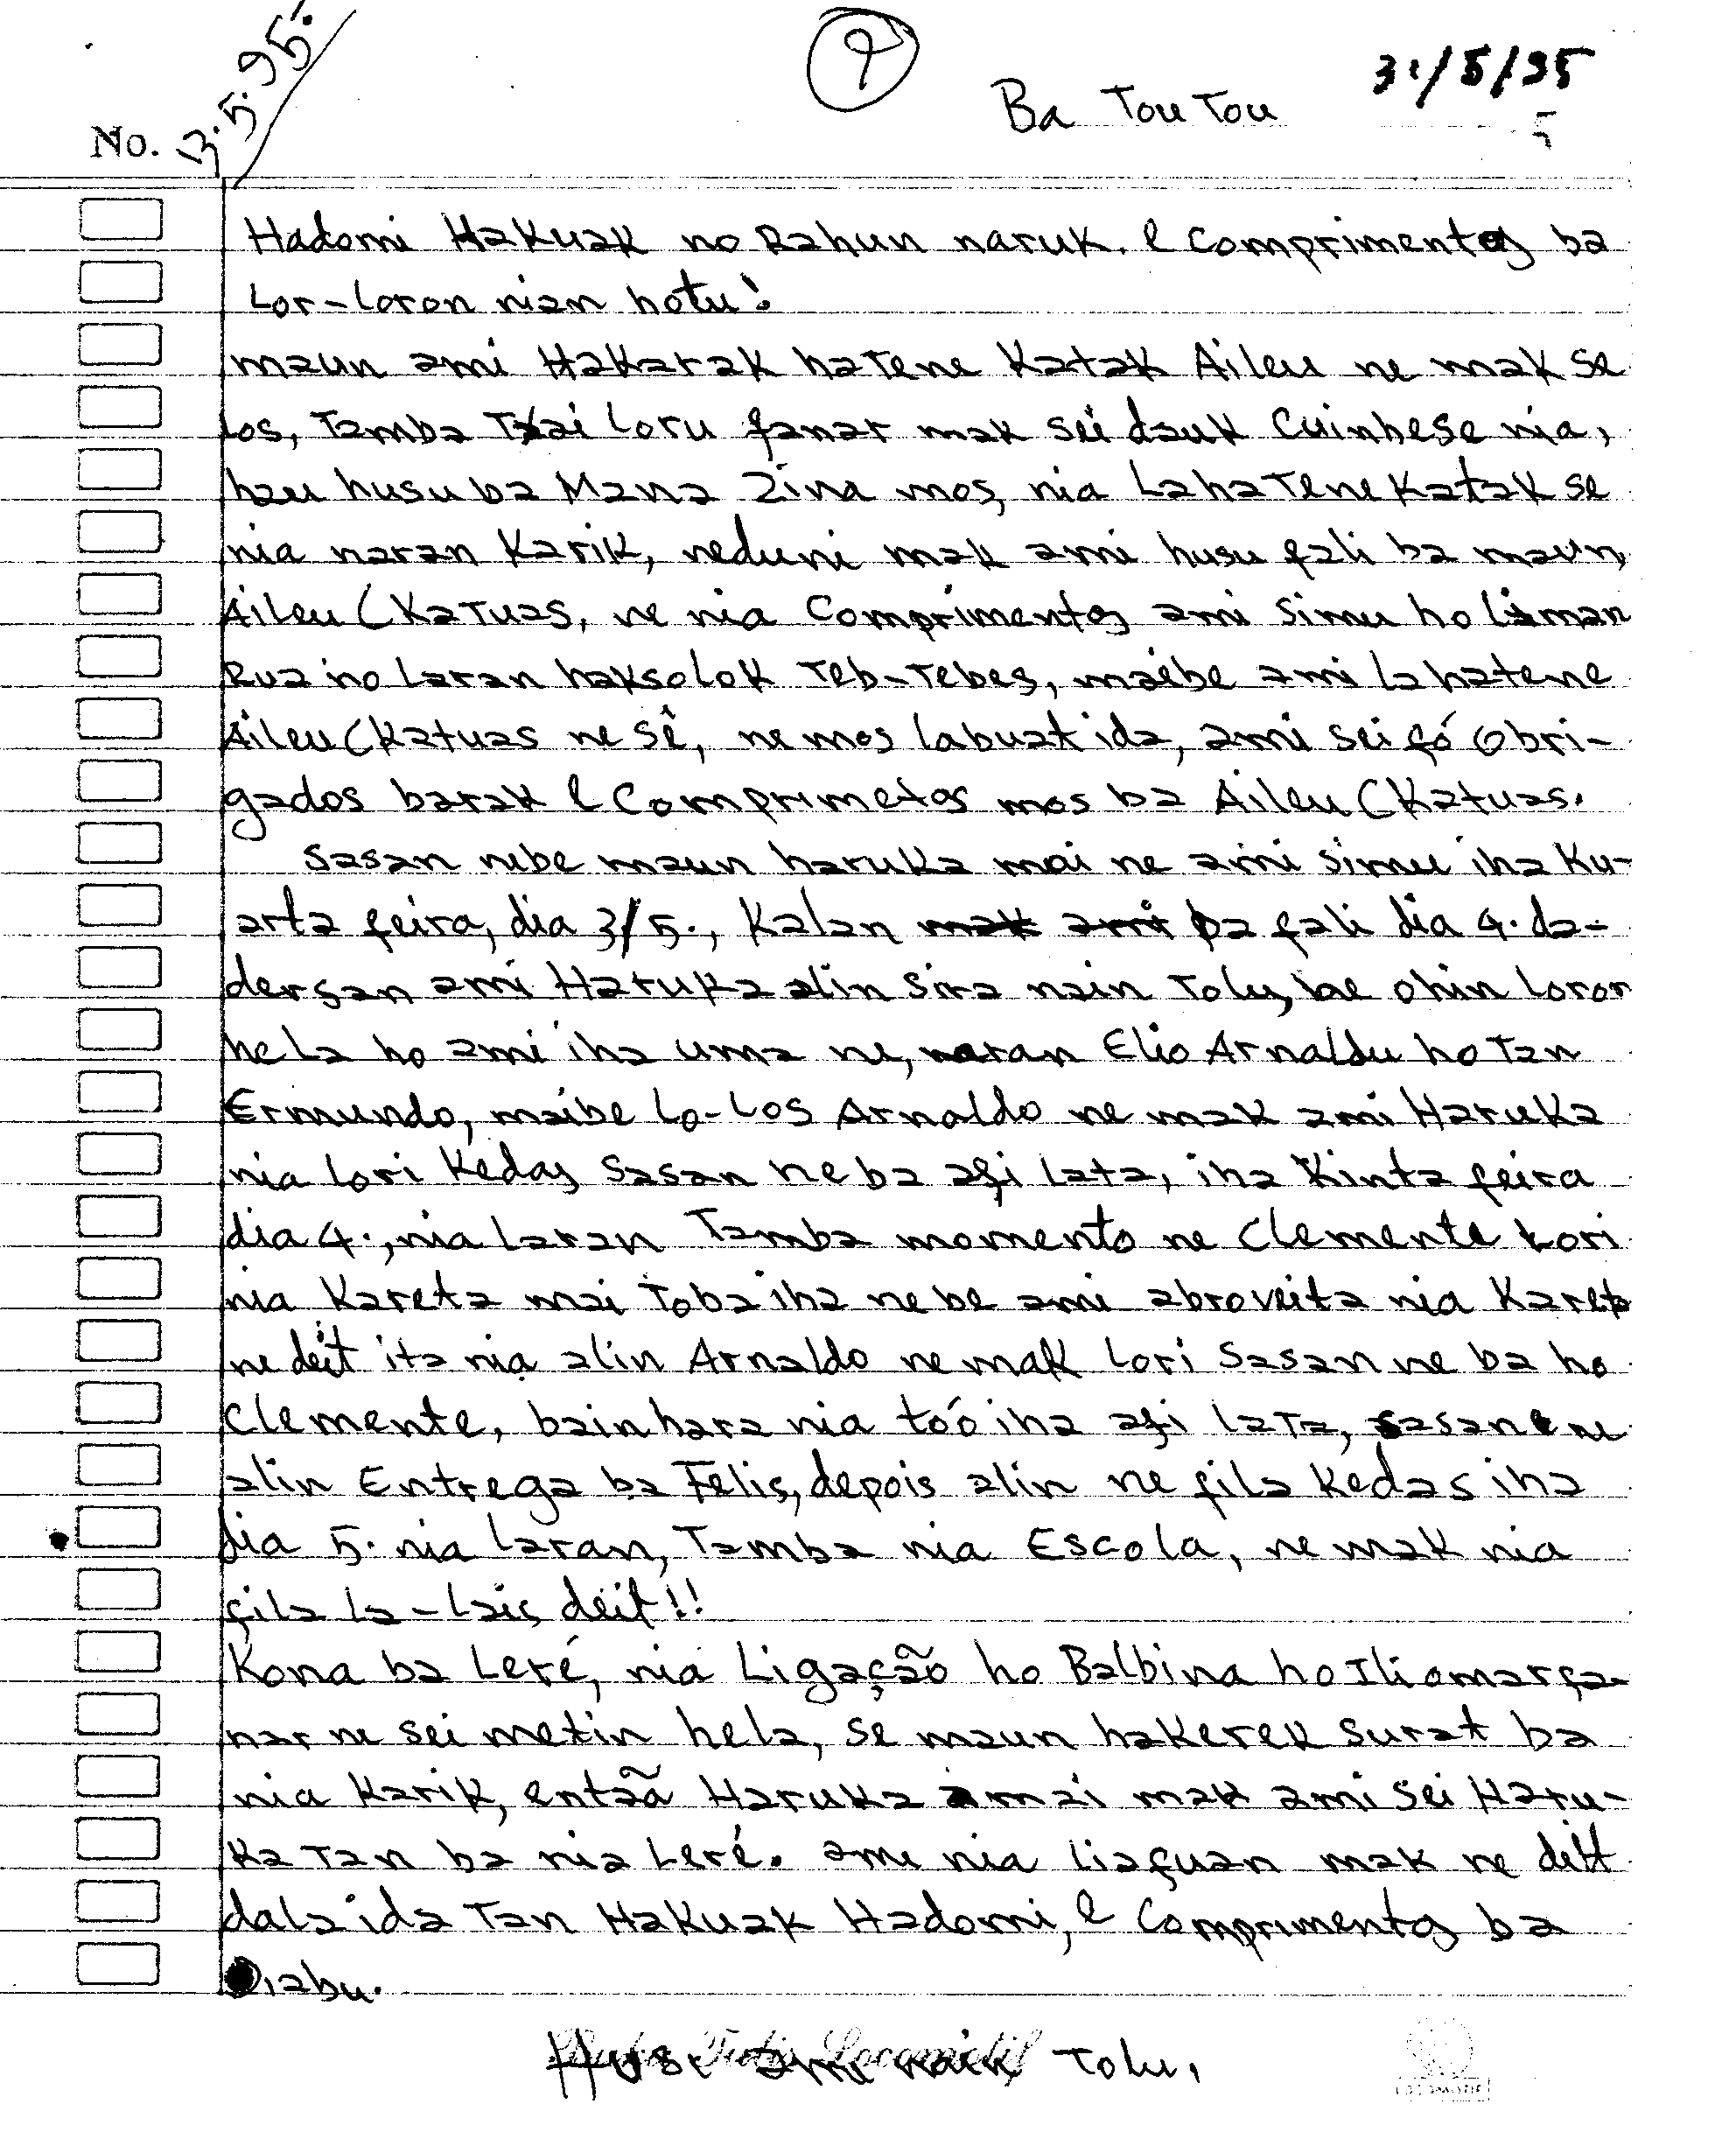 3.5.95.
9
31/5/95
Ba Tou Tou
5
No.
Hadomi Hakuak no Rahun naruk. e Comprimentos ba
Lor-loron nian hotu!
maun ami Hakarak hatene Katak Aileu ne mak se
los, Tamba Txai Loru fanar mak sei dauk Cuinhese nia,
hau husu ba Mana Zina mos, nia La hatene Katak se
nia naran Karik, neduni mak ami husu fali ba maun,
Aileu (Katuas, ne nia Comprimentos ami simu ho liman
Rua no laran haksolok Teb-Tebes, maebe ami la hatene
Aileu (Katuas ne sê, ne mos labuat ida, ami sei fó Obri-
gados barak e Comprimetos mos ba Aileu (Katuas.
Sasan nebe maun haruka mai ne ami simu iha Ku-
arta feira, dia 3/5., Kalan mak ami ba fali dia 4. da-
dersan ami Haruka alin sira nain Tolu, be ohin loron
hela ho ami iha uma ne, naran Elio Arnaldu ho Tan
Ermundo, maibe lo-Los Arnaldo ne mak ami Haruka
nia lori Kedas Sasan ne ba afi lata, iha Kinta feira
dia 4., nia laran Tamba momento ne Clemente Lori
nia Kareta mai Toba iha nebe ami abroveita nia Kareta
ne deit ita nia alin Arnaldo ne mak lori Sasan ne ba ho
Clemente, bainhara nia tóo iha afi lata, sasan ne
alin Entrega ba Felis, depois alin ne fila Kedas iha
dia 5. nia laran, Tamba nia Escola, ne mak nia
fila la-lais deit!!
Kona ba Leré, nia Ligação ho Balbina ho Iliomar fa-
nar ne sei metin hela, se maun hakerek surat ba
nia Karik, entaã Haruka mai mak ami sei Haru-
Ka Tan ba nia Leré. ami nia liafuan mak ne deit
dala ida Tan Hakuak Hadomi, e Comprimentos ba
Diabu.
Husi ami nain Tolu,
LOCOMOTIF